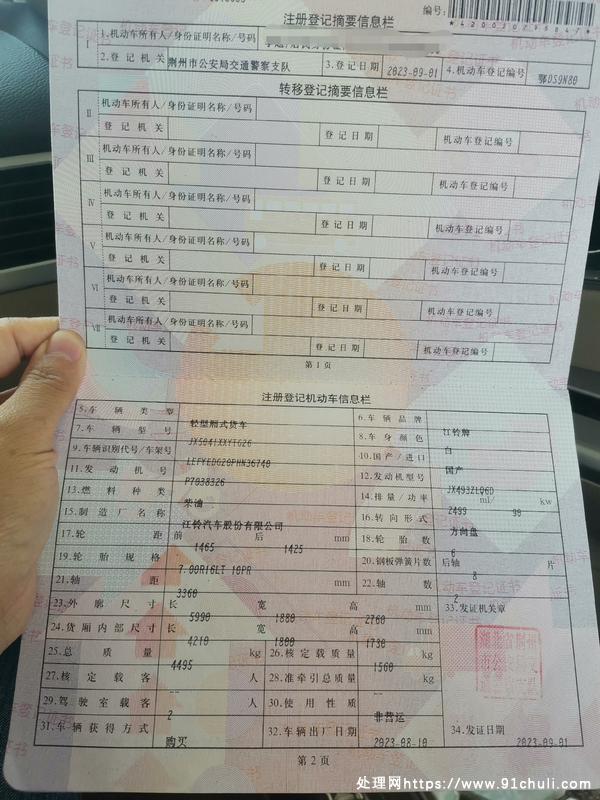 注册登记摘要信息栏
编号:
*420030796847*
I
1.机动车所有人/身份证明名称/号码
2.登记机关 荆州市公安局交通警察支队 3.登记日期 2023-09-01 4.机动车登记编号 鄂DS9N80
转移登记摘要信息栏
II 机动车所有人/身份证明名称/号码
登记机关 登记日期 机动车登记编号
III 机动车所有人/身份证明名称/号码
登记机关 登记日期 机动车登记编号
IV 机动车所有人/身份证明名称/号码
登记机关 登记日期 机动车登记编号
V 机动车所有人/身份证明名称/号码
登记机关 登记日期 机动车登记编号
VI 机动车所有人/身份证明名称/号码
登记机关 登记日期 机动车登记编号
VII 机动车所有人/身份证明名称/号码
登记机关 登记日期 机动车登记编号
第1页
注册登记机动车信息栏
5.车辆类型 轻型厢式货车 6.车辆品牌 江铃牌
7.车辆型号 JX5041XXYTG26 8.车身颜色 白
9.车辆识别代号/车架号 LEFYEDG20PHN36740 10.国产/进口 国产
11.发动机号 P7038326 12.发动机型号 JX493ZLQ6D
13.燃料种类 柴油 14.排量/功率 2499 ml/ 90 kw
15.制造厂名称 江铃汽车股份有限公司 16.转向形式 方向盘
17.轮距 前 1465 后 1425 mm 18.轮胎数 6
19.轮胎规格 7.00R16LT 10PR 20.钢板弹簧片数 后轴 8 片
21.轴距 3360 mm 22.轴数 2
23.外廓尺寸 长 5990 宽 1880 高 2760 mm 33.发证机关章
24.货厢内部尺寸 长 4210 宽 1800 高 1730 mm
25.总质量 4495 kg 26.核定载质量 1560 kg
27.核定载客 -- 人 28.准牵引总质量 -- kg
29.驾驶室载客 2 人 30.使用性质 非营运
31.车辆获得方式 购买 32.车辆出厂日期 2023-08-10 34.发证日期 2023-09-01
第2页
处理网https://www.91chuli.com/